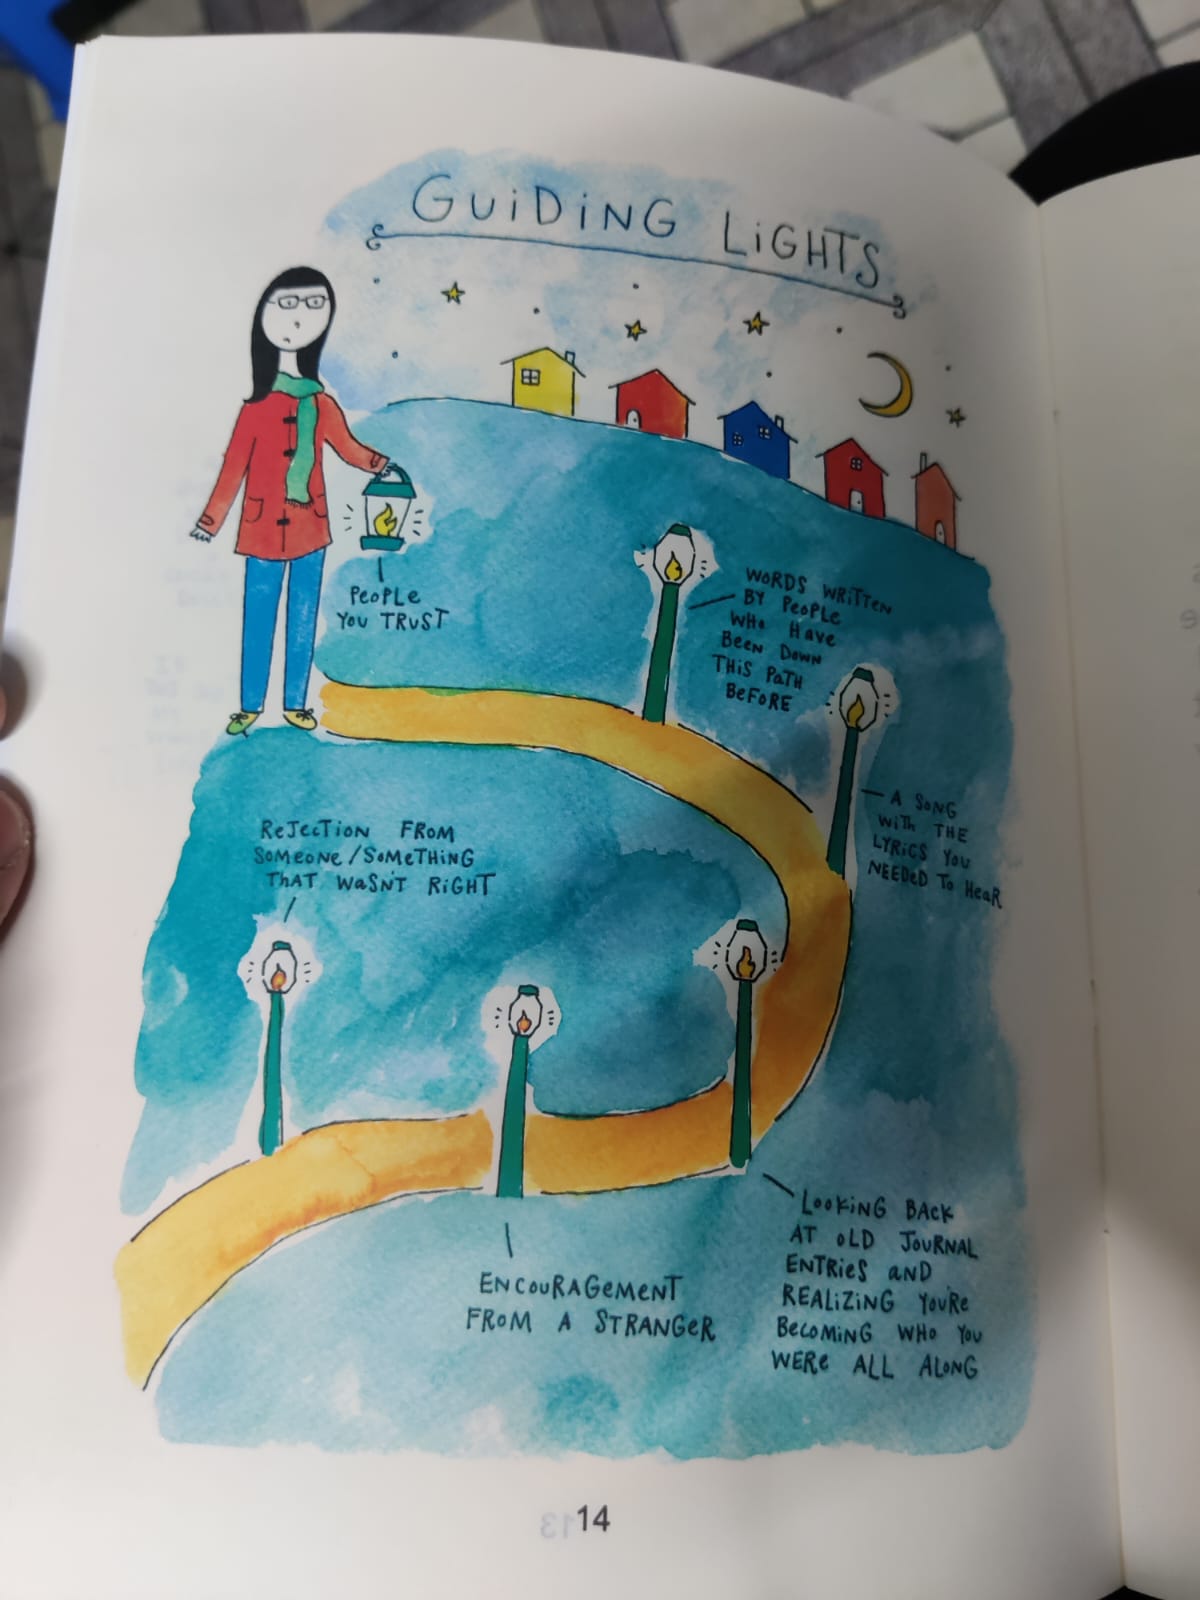 GUiDiNG LiGHTS
PeoPLe
YoU TRUST
WoRDS WRiTTeN
BY PeoPLe
WHo Have
BeeN DowN
THiS PaTH
BeFoRe
A SoNG
WiTh THE
LYRiCS You
NEEDeD To HeaR
ReJecTioN FRoM
SoMeoNe/SoMeTHiNG
ThAT WaSN'T RiGHT
ENCoURAGeMeNT
FRoM A STRANGeR
LooKiNG BAcK
AT oLD JouRNAL
ENTRieS aND
REALiZiNG You'Re
BecoMiNG WHo YoU
WERe ALL ALoNG
14